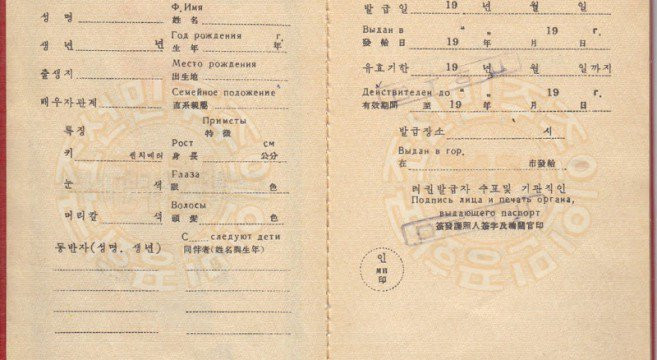 Ф. Имя
성 명 姓 名
Год рождения г.
생 년 년 生 年 年
Место рождения
출생지 出生地
Семейное положение
배우자관계 直系親屬
Приметы
특징 特 徵
Рост см
키 쎈치메터 身 長 公分
Глаза
눈 색 眼 色
Волосы
머리칼 색 頭 髮 色
С следуют дети
동반자(성명, 생년) 同伴者(姓名與生年)
발 급 일 19 년 월 일
Выдан в " " 19 г.
發 給 日 19 年 月 日
유효기한 19 년 월 일까지
Действителен до " " 19 г.
有效期間 至 19 年 月 日
발급장소 시
Выдан в гор.
在 市發給
려권발급자 수표및 기관직인
Подпись лица и печать органа,
выдающего паспорт
簽發護照人簽字及機關官印
인
МП
印